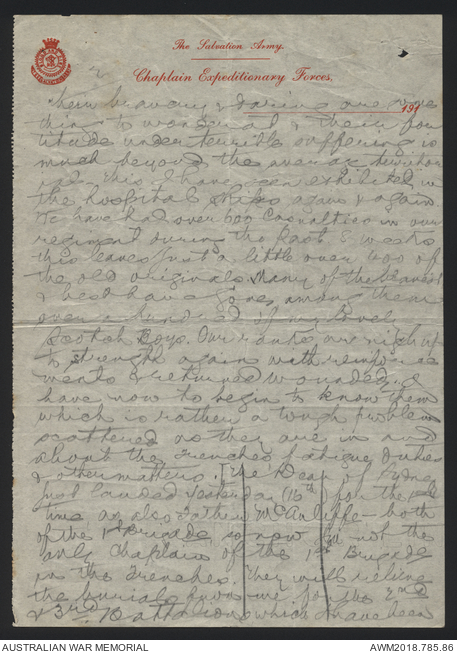 The Salvation Army.
Chaplain Expeditionary Forces,
2
191
their bravery & daring are some
thing to wonder at & their for
titude under terrible suffering is
much beyond the average
this I have seen exhibited in
the hospital ships again & again
We have had over 600 casualties in our
regiment during the last 8 weeks
this leaves just a little over 400 of
the old originals. Many of the bravest
& best have gone among them
over a hundred of my lovely
Scotch Boys. Our ranks are nigh up
to strength again with reinforce
ments & returned wounded. I
have now to begin to know them
which is rather a tough problem
scattered as they are in and
about the trenches fatigue duties
& other matters. The Dean of Sydney
just landed yesterday (16th) for the 1st
time as also Father McAuliffe - both
of the 1st Brigade so now I'm not the
only Chaplain of the 1st Brigade
in the trenches. They will relieve
the burials for the 2nd
& 3rd Battalions which I have been
AUSTRALIAN WAR MEMORIAL
AWM2018.785.86